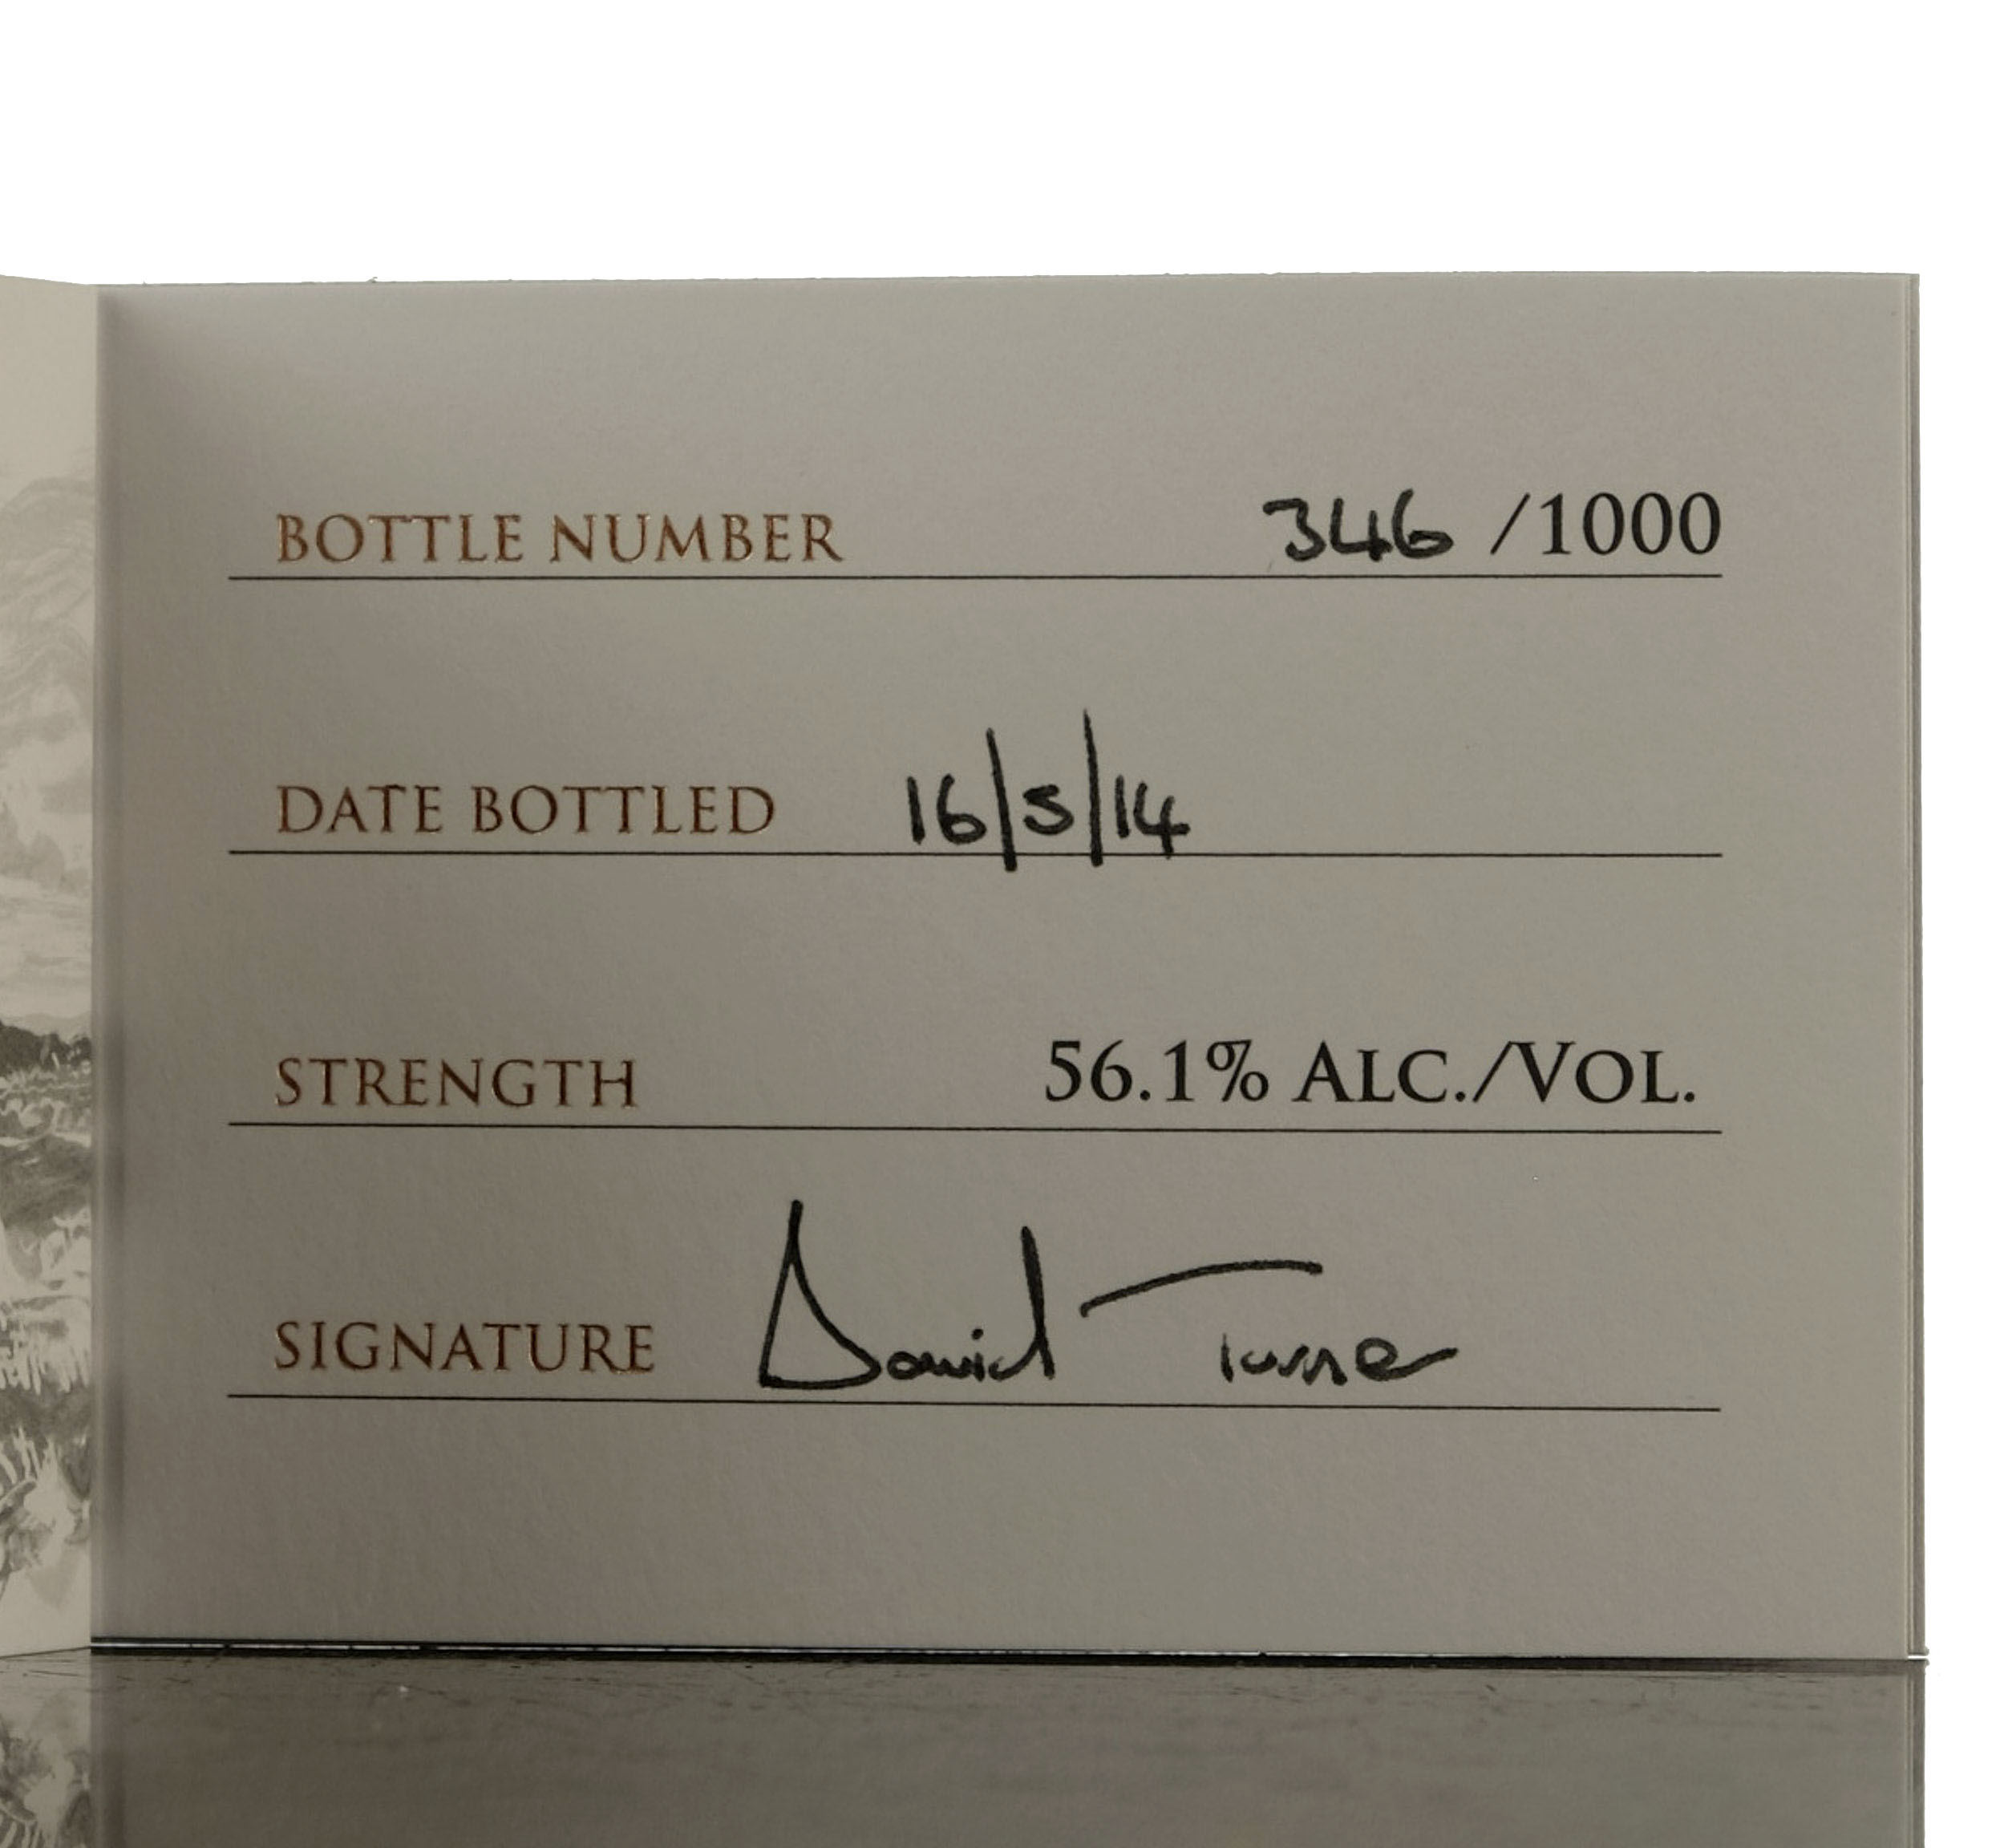 BOTTLE NUMBER 346 /1000
DATE BOTTLED 16/5/14
STRENGTH 56.1% ALC./VOL.
SIGNATURE David Turner